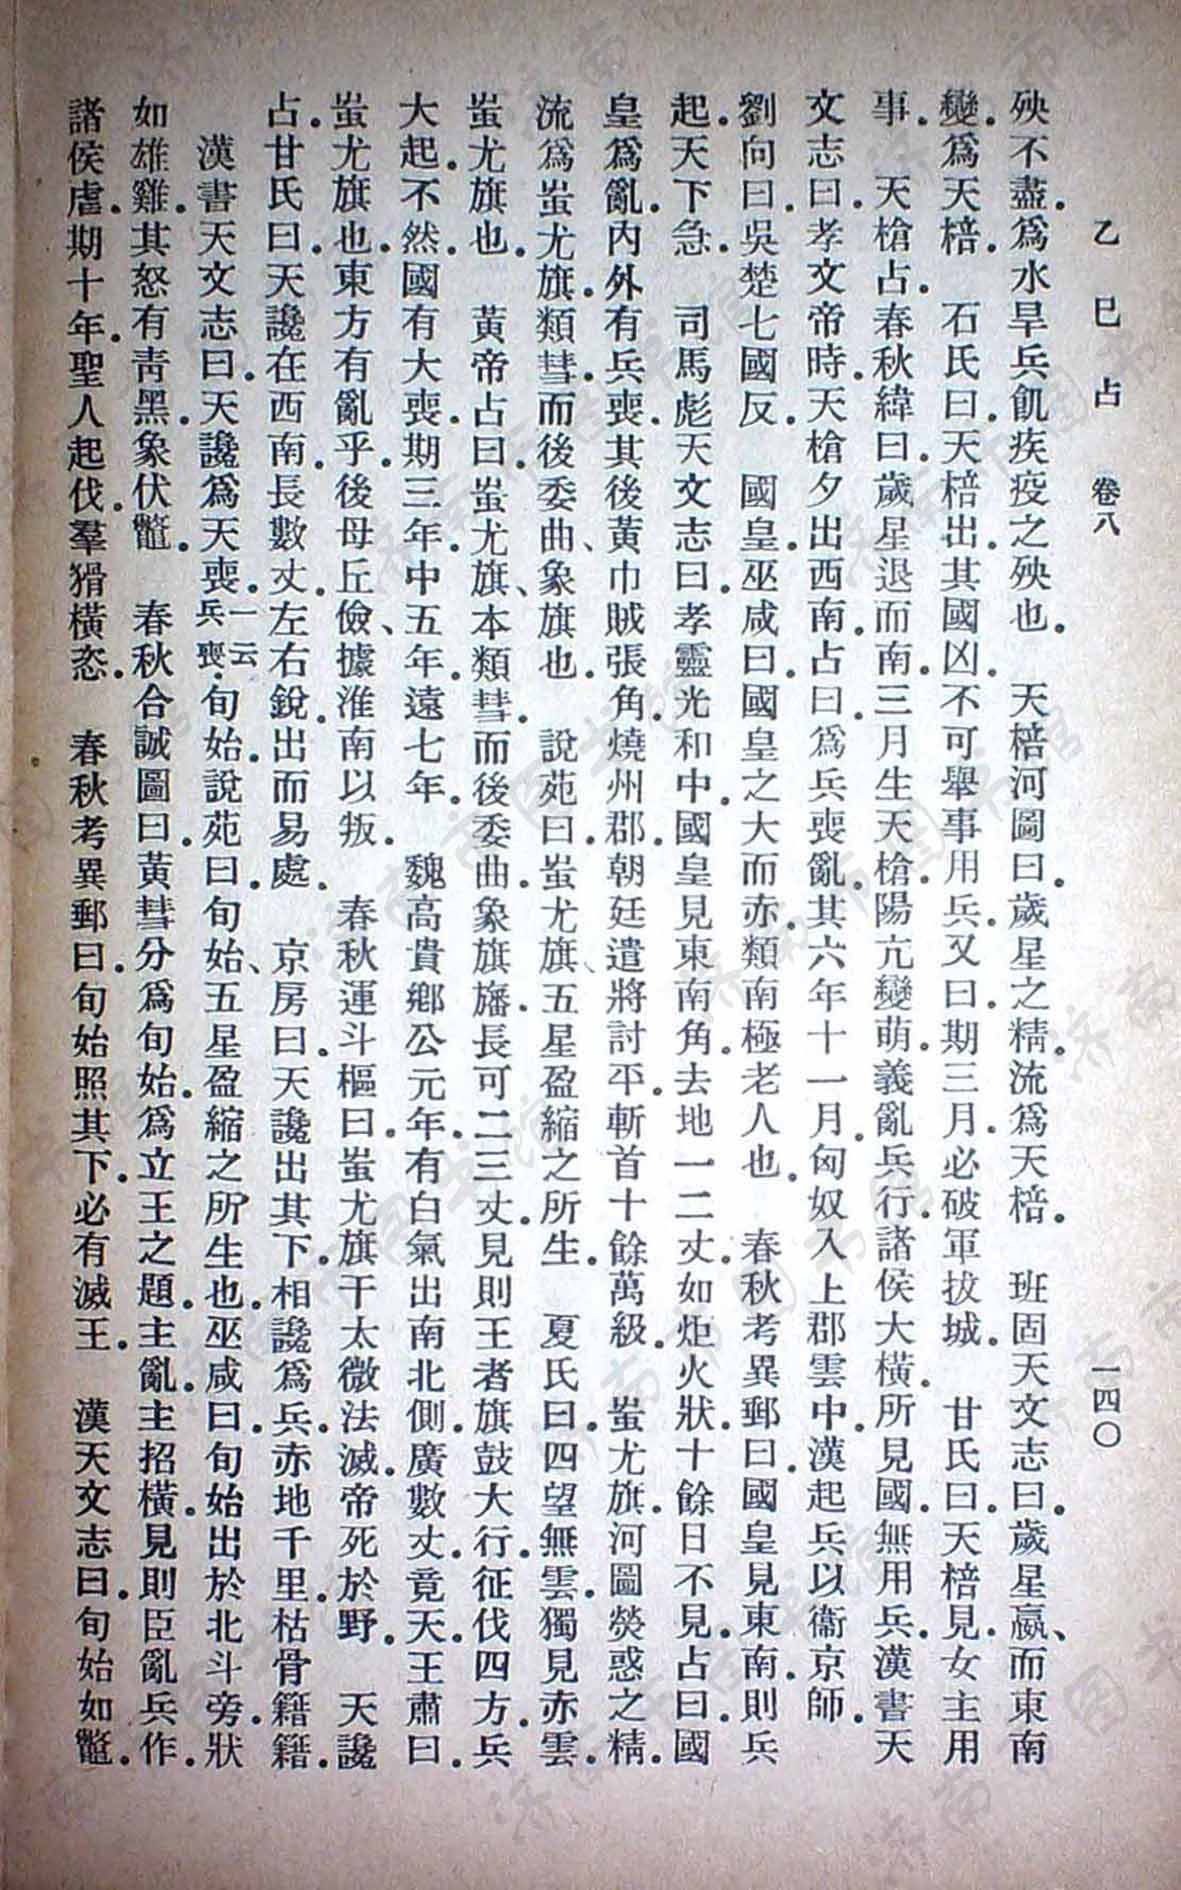 乙巳占　卷八　一四〇
殃不盡。爲水旱兵飢疾疫之殃也。　天棓河圖曰。歲星之精。流爲天棓。　班固天文志曰。歲星嬴、而東南
變。爲天棓。　石氏曰。天棓出。其國凶。不可舉事用兵。又曰。期三月。必破軍拔城。　甘氏曰。天棓見。女主用
事。　天槍占。春秋緯曰。歲星退而南。三月生天槍。陽亢變萌。義亂兵行。諸侯大橫。所見國。無用兵。漢書天
文志曰。孝文帝時。天槍夕出西南。占曰。爲兵喪亂。其六年十一月。匈奴入上郡雲中。漢起兵以衞京師。
劉向曰。吳楚七國反。　國皇。巫咸曰。國皇之大而赤。類南極老人也。　春秋考異郵曰。國皇見東南。則兵
起。天下急。　司馬彪天文志曰。孝靈光和中。國皇見東南角。去地一二丈。如炬火狀。十餘日不見。占曰。國
皇爲亂。內外有兵喪。其後黃巾賊張角。燒州郡。朝廷遣將討平。斬首十餘萬級。　蚩尤旗。河圖熒惑之精。
流爲蚩尤旗。類彗。而後委曲、象旗也。　說苑曰。蚩尤旗、五星盈縮之所生。　夏氏曰。四望無雲。獨見赤雲。
蚩尤旗也。　黃帝占曰。蚩尤旗、本類彗。而後委曲。象旗旛。長可二三丈。見則王者旗鼓大行。征伐四方。兵
大起。不然。國有大喪。期三年。中五年。遠七年。　魏高貴鄉公元年。有白氣出南北側。廣數丈。竟天。王肅曰。
蚩尤旗也。東方有亂乎。後母丘儉、據淮南以叛。　春秋運斗樞曰。蚩尤旗干太微法滅。帝死於野。　天讒
占。甘氏曰。天讒在西南。長數丈。左右銳。出而易處。　京房曰。天讒出其下。相讒爲兵。赤地千里。枯骨籍籍。
漢書天文志曰。天讒爲天喪。一云兵喪。旬始。說苑曰。旬始、五星盈縮之所生也。巫咸曰。旬始出於北斗旁。狀
如雄雞。其怒有靑黑。象伏鼈。　春秋合誠圖曰。黃彗分爲旬始。爲立王之題。主亂。主招橫。見則臣亂兵作。
諸侯虐。期十年。聖人起伐。羣猾橫恣。　春秋考異郵曰。旬始照其下。必有滅王。　漢天文志曰。旬始如鼈。